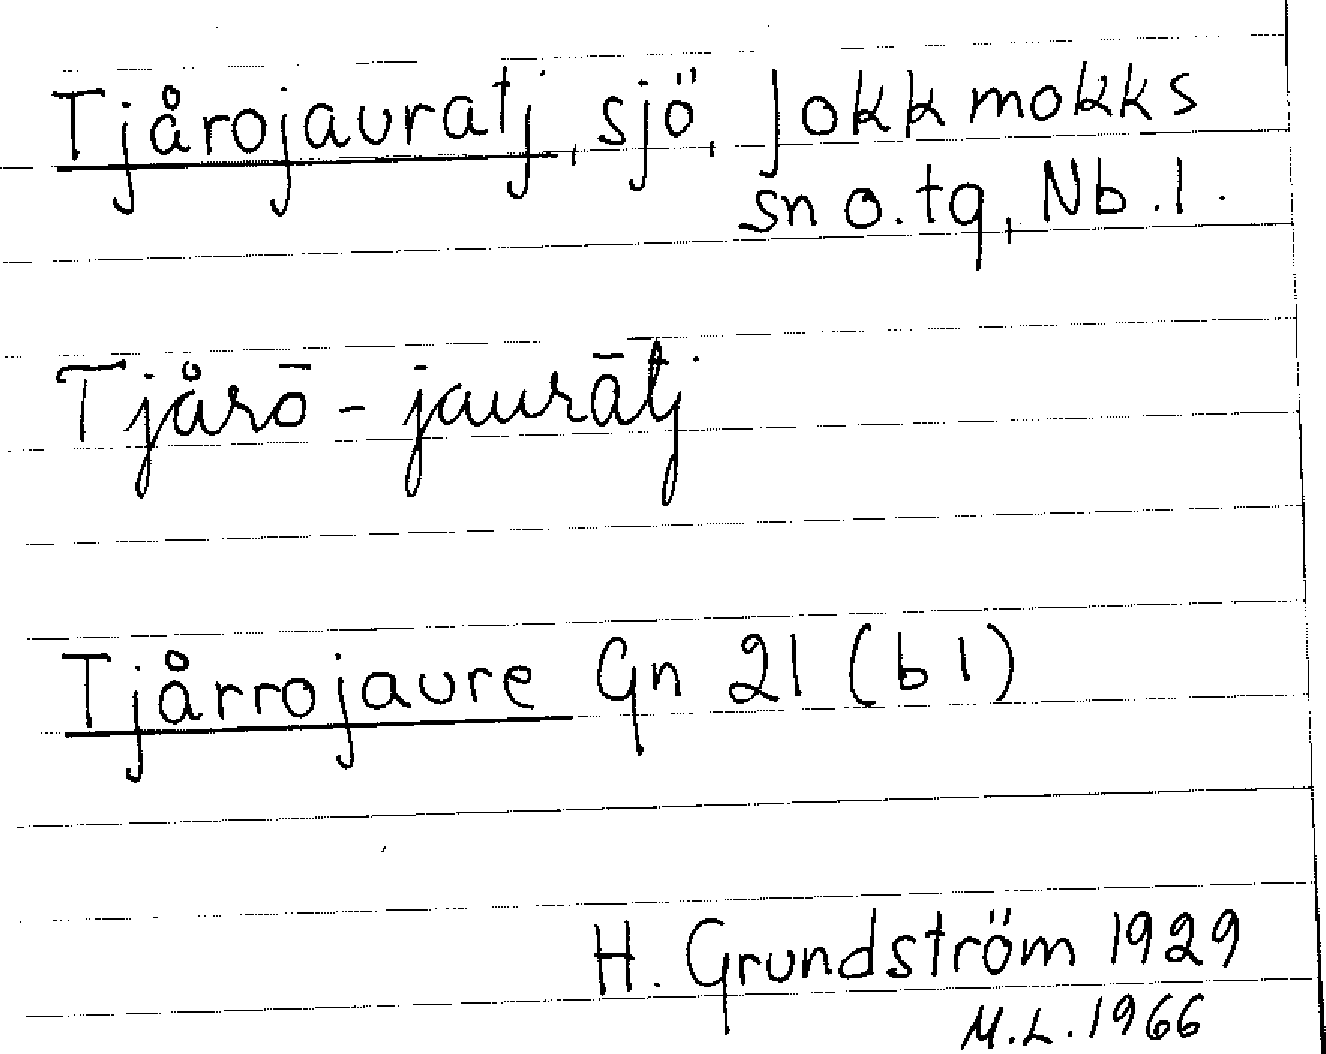 Tjårojauratj, sjö, Jokkmokks
sn o. tg, Nb. l.
Tjårō-jaurātj
Tjårrojaure Gn 21 (b1)
H. Grundström 1929
M.L. 1966